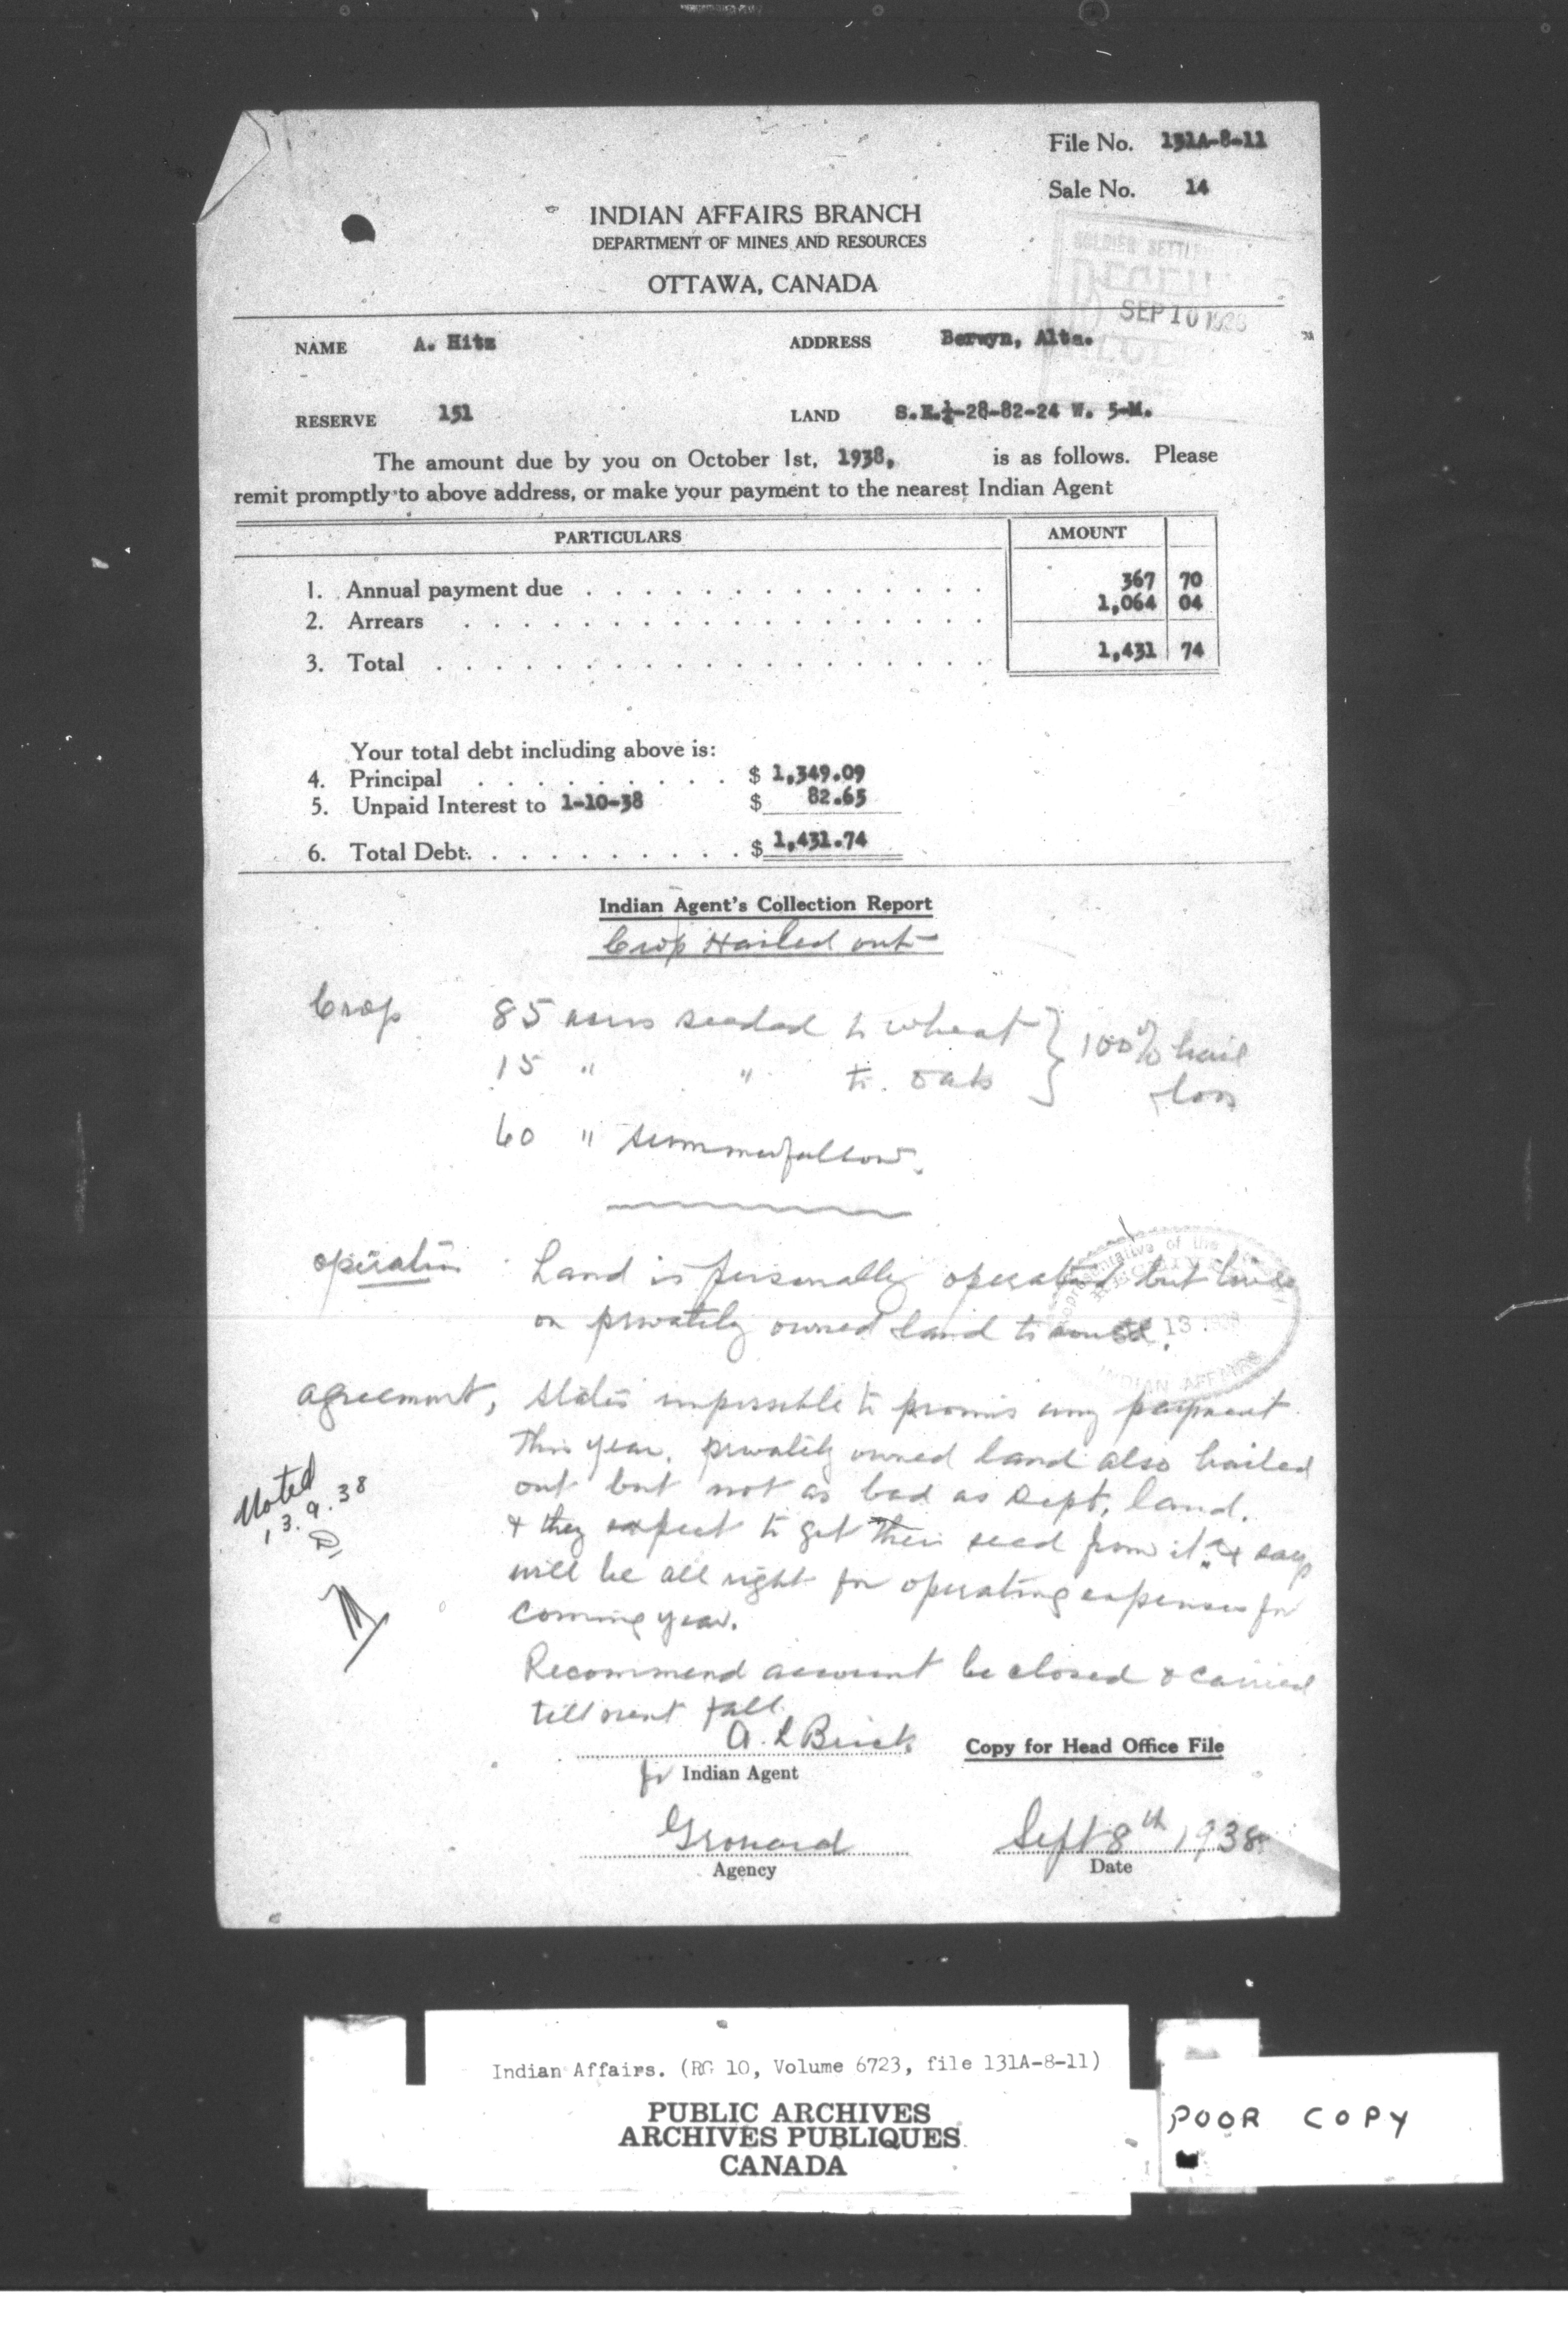 File No. 131A-8-11
Sale No. 14
INDIAN AFFAIRS BRANCH
DEPARTMENT OF MINES AND RESOURCES
OTTAWA, CANADA
SOLDIER SETTLE
SEP 10 1938
NAME A. Hitz ADDRESS Berwyn, Alta.
RESERVE 151 LAND S.E.¼-28-82-24 W. 5-M.
The amount due by you on October 1st, 1938, is as follows. Please
remit promptly to above address, or make your payment to the nearest Indian Agent
PARTICULARS AMOUNT
1. Annual payment due 367 70
2. Arrears 1,064 04
3. Total 1,431 74
Your total debt including above is:
4. Principal $ 1,349.09
5. Unpaid Interest to 1-10-38 $ 82.65
6. Total Debt. $ 1,431.74
Indian Agent's Collection Report
Crop Hailed out
Crop 85 acres seeded to wheat } 100% hail
15 " " to oats } loss
60 " summerfallow.
operation Land is personally operated but lives
on privately owned land to south.
RECEIVED
13 1938
INDIAN AFFAIRS
agreement, States impossible to promis any payment
this year. privately owned land also hailed
out but not as bad as Dept. land.
& they expect to get their seed from it & says
will be all right for operating expenses for
coming year.
Noted
13.9.38
Recommend account be closed & carried
till next fall.
A. L Brick
for Indian Agent
Copy for Head Office File
Grouard Sept 8th 1938
Agency Date
Indian Affairs. (RG 10, Volume 6723, file 131A-8-11)
PUBLIC ARCHIVES
ARCHIVES PUBLIQUES
CANADA
POOR COPY